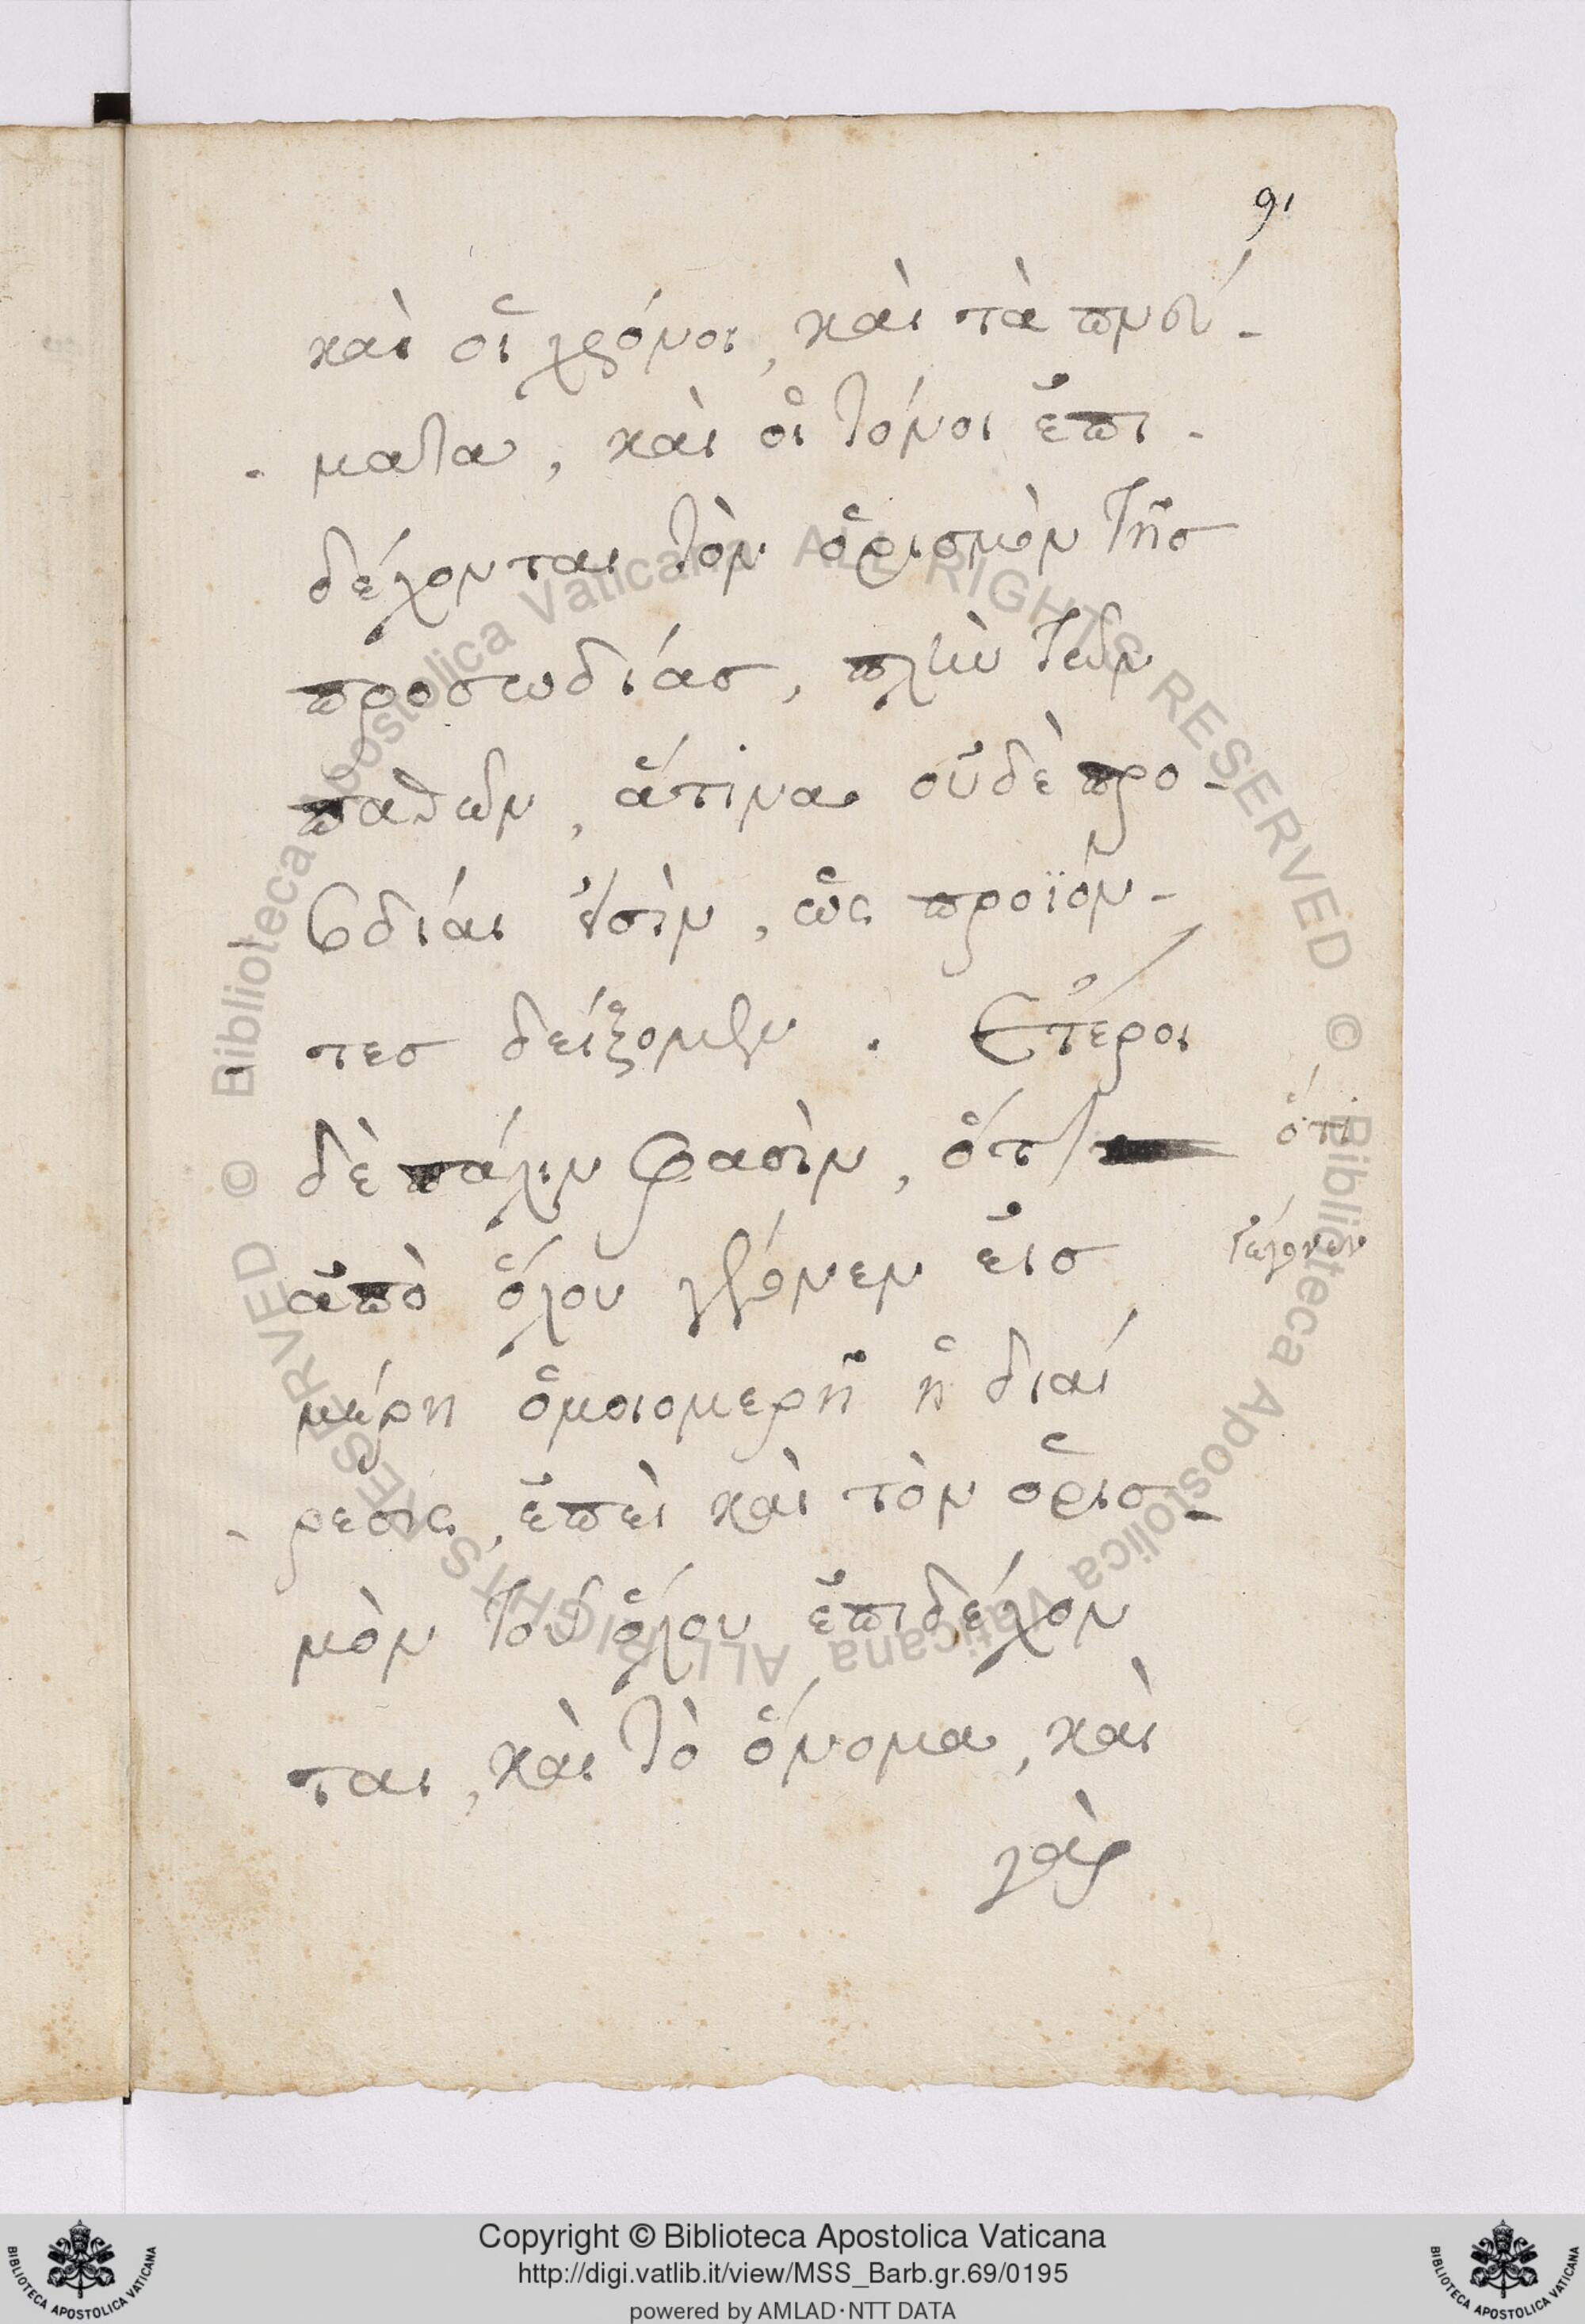 91
καὶ οἱ χρόνοι, καὶ τὰ πνεύ-
-ματα, καὶ οἱ τόνοι ἐπι-
δέχονται τὸν ὁρισμὸν τῆσ
προσωδίασ, πλὴν τῶν
παθῶν, ἅτινα οὐδὲ προ-
σωδίαι εἰσὶν, ὡς προϊόν-
τεσ δείξομεν. Ἕτεροι
δὲ πάλιν φασὶν, ὅτι
ὅτι
ἀπὸ ὅλου γέγονεν εἰσ
γέγονεν
μέρη ὁμοιομερῆ ἡ διαί
-ρεσις, ἐπεὶ καὶ τὸν ὁρισ-
μὸν τοῦ ὅλου ἐπιδέχον
ται, καὶ τὸ ὄνομα, καὶ
γὰρ
Biblioteca Apostolica Vaticana ALL RIGHTS RESERVED ©
Biblioteca Apostolica Vaticana ALL RIGHTS RESERVED ©
Copyright © Biblioteca Apostolica Vaticana
http://digi.vatlib.it/view/MSS_Barb.gr.69/0195
powered by AMLAD·NTT DATA
BIBLIOTECA APOSTOLICA VATICANA
BIBLIOTECA APOSTOLICA VATICANA